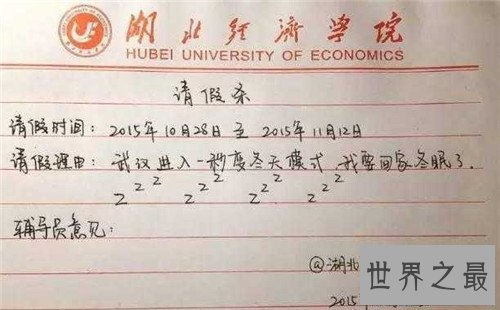 湖北经济学院
HUBEI UNIVERSITY OF ECONOMICS
请假条
请假时间：2015年10月28日 至 2015年11月12日
请假理由：武汉进入一秒变冬天模式，我要回家冬眠了.
z z z z z z z z z z z z
辅导员意见：
@湖北
世界之最
2015